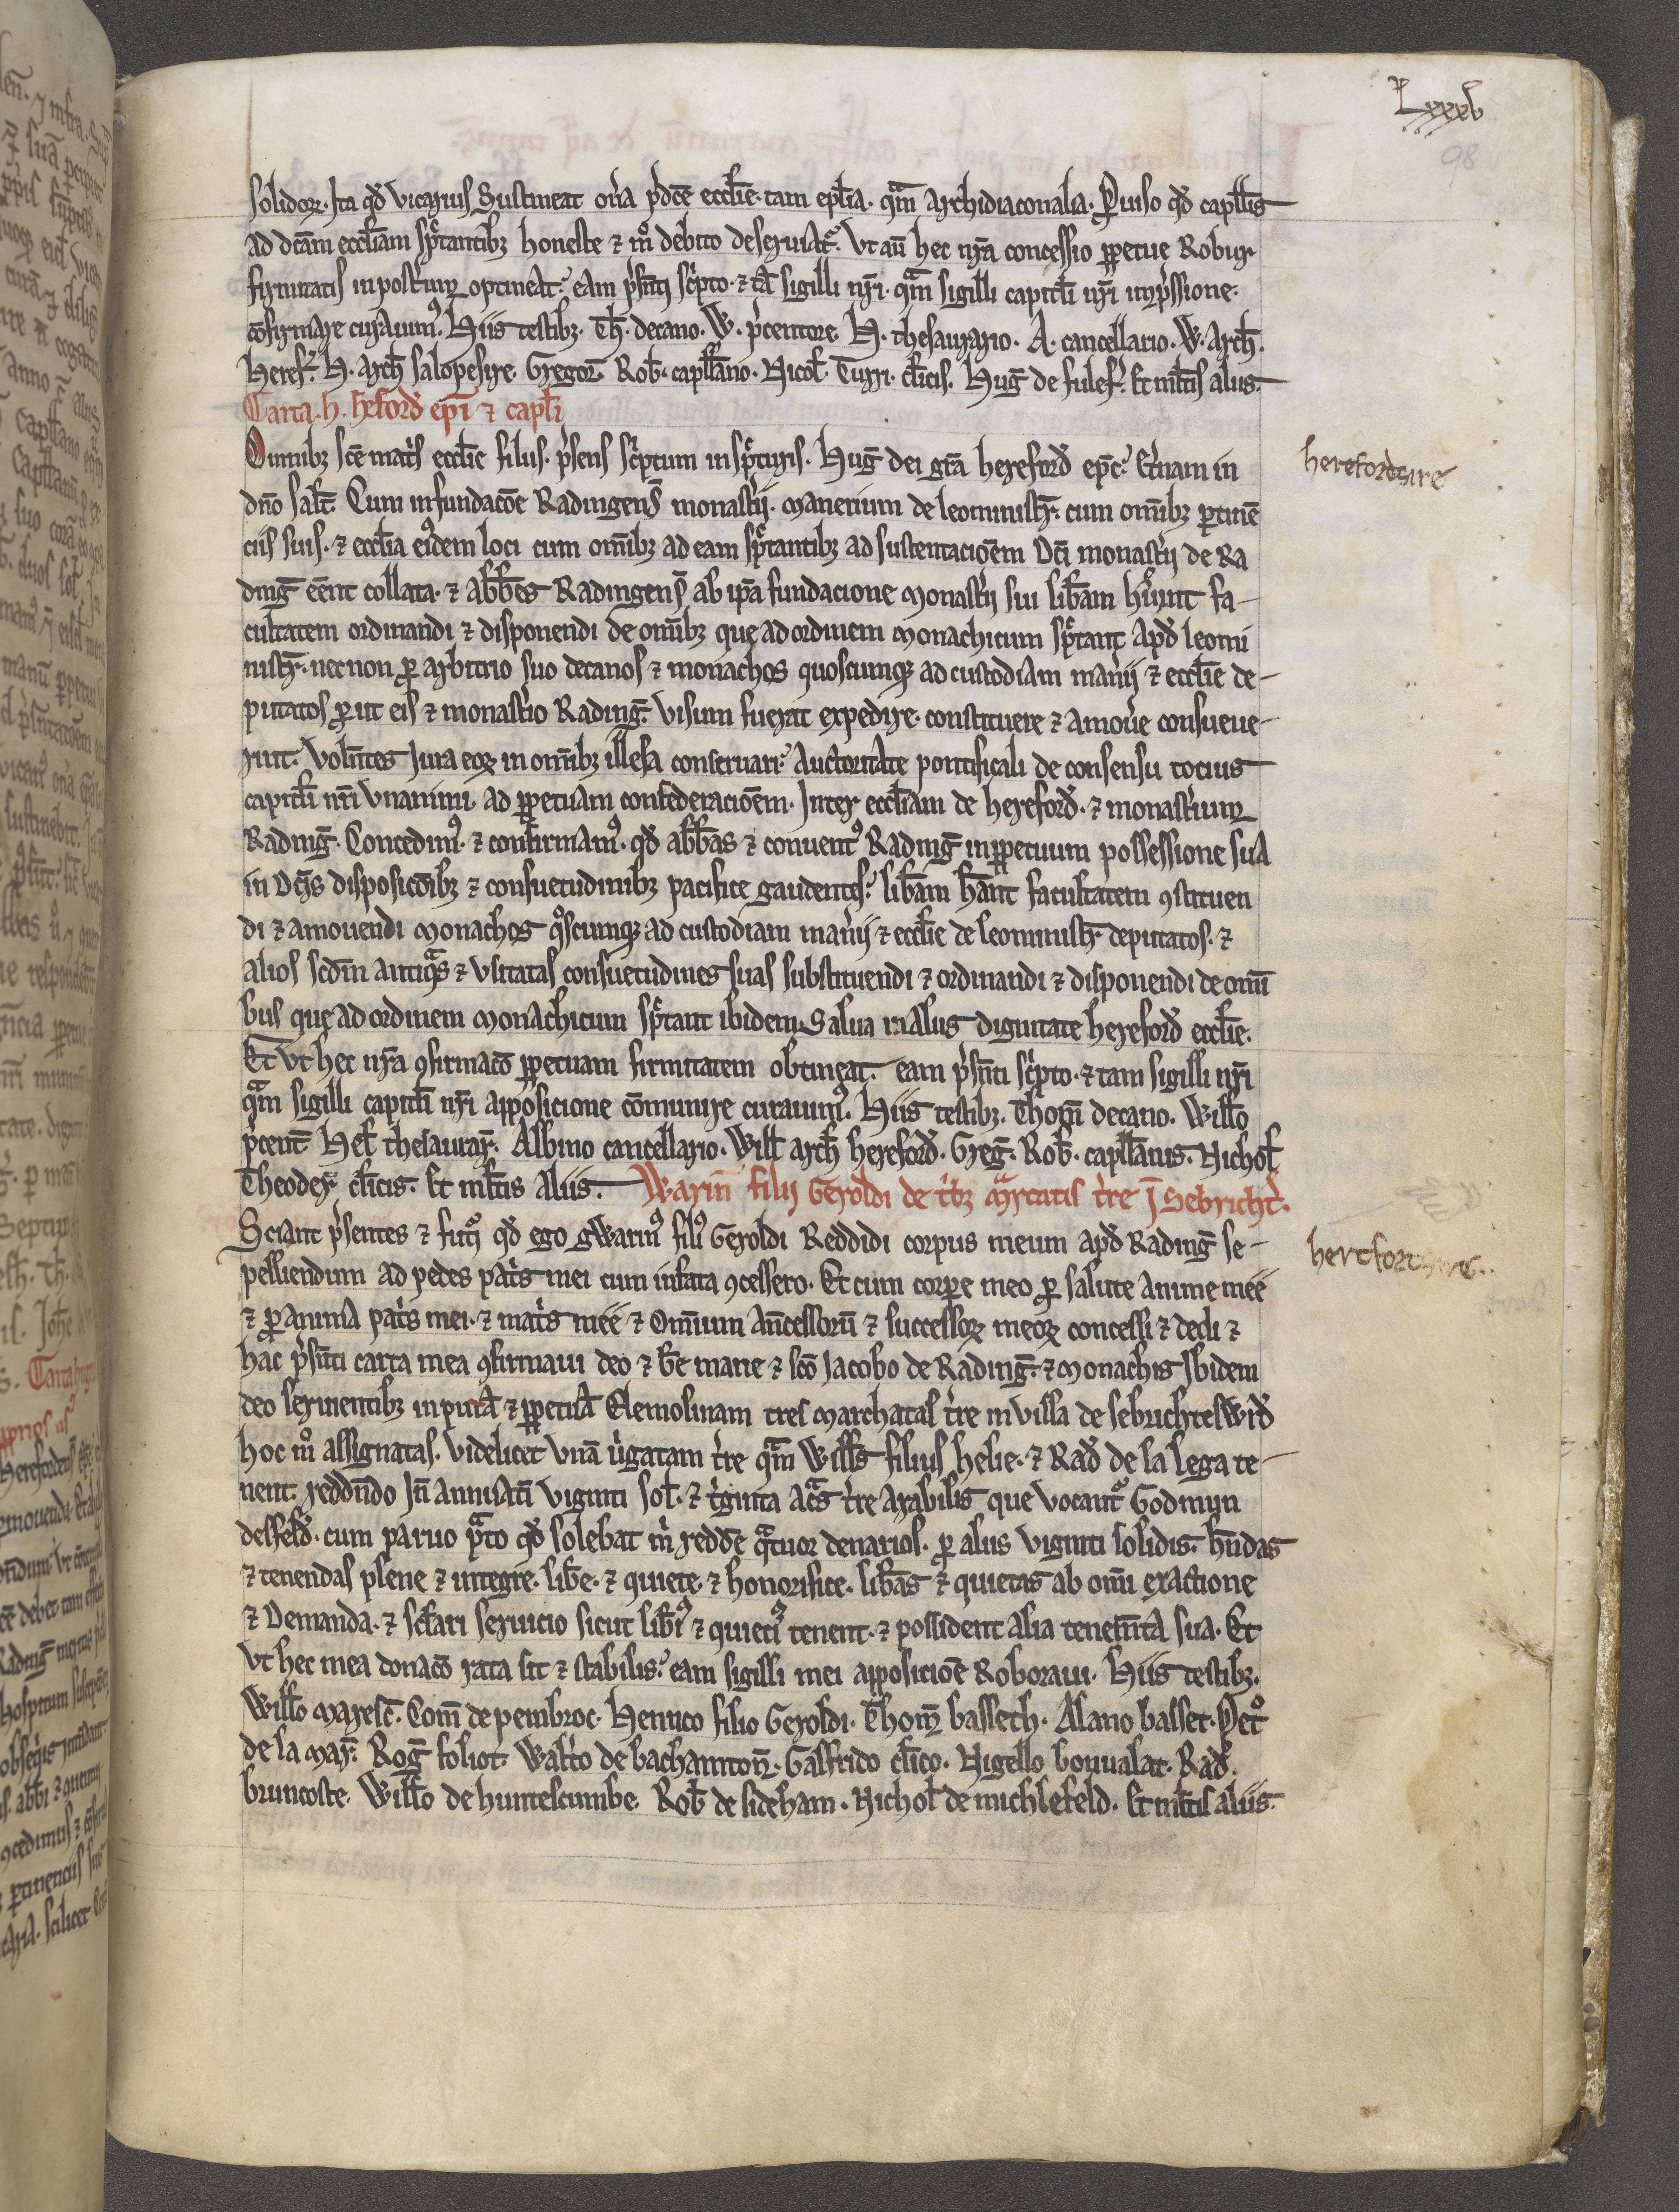 Lxxxv
98
solidorꝝ. Ita qd̄ vicarius sustineat on̄a p̄dcē eccl̄ie. tam ep̄lia. qᵃm archidiaconalia. Puiso qd̄ capll̄is
ad dc̄am eccl̄iam sp̄ctantibꝫ honeste ⁊ mͦ debito deseruiatᷣ. Vt aū hec nr̄a concessio ꝑpetue Robur
firmitatis inposteꝝ optineat: eam p̄senti sc̄pto. ⁊ tā sigilli nr̄i. qᵃm sigilli capitl̄i nr̄i imp̄ssione.
cōfirmare curauimꝰ. Hiis testibꝫ. Th̄. decano. W. p̄centore. H. thesaurario. A. cancellario. W. arch̄.
heref̄. H. arch̄ salopesire. Gregor̄. Rob̄. capll̄ano. Nicol̄. Turri. cl̄icis. Huḡ de fulef̄. Et ml̄tis aliis.
Carta. h. h̄eford̄ ep̄i ⁊ capl̄i
Omnibꝫ sc̄e mat̄s eccl̄ie filiis. p̄sens sc̄ptum insp̄cturis. Huḡ dei gr̄a hereford̄ ep̄c: Et̄nam in
herefordsire
dn̄o sal̄t. Cum in fundacōe Radingens̄ monast̄ii. manerium de leominist̄r. cum om̄ibꝫ ꝑtinē
ciis suis. ⁊ eccl̄ia eiꝰdem loci cum om̄ibꝫ ad eam sp̄ctantibꝫ ad sustentaciōem Dc̄i monast̄ii de Ra
dinḡ eēnt collata. ⁊ abb̄es Radingens̄ ab ip̄a fundacione Monast̄ii sui lib̄am hūint fa-
cultatem ordinandi ⁊ disponendi de om̄ibꝫ que ad ordinem monachicum sp̄ctant apd̄ leomi
nist̄r. necnon ꝓ arbitrio suo decanos ⁊ monachos quoscumqꝫ ad custodiam man̄ii ⁊ eccl̄ie de-
putatos ꝓut eis ⁊ monast̄io Radinḡ. visum fuerat expedire. constituere ⁊ amoūe consueue-
runt. Voln̄tes Jura eoꝝ in om̄ibꝫ illesa conseruari: Auctoritate pontificali de consensu tocius
capitl̄i nr̄i vnanimi. ad ꝑpetuam confederaciōem. Inter eccl̄iam de hereford̄. ⁊ monast̄ium
Radinḡ. Concedimꝰ. ⁊ confirmamꝰ. qd̄ abb̄as ⁊ conuentꝰ Radinḡ inꝑpetuum possessione sua
in Dc̄is disposicōibꝫ ⁊ consuetudinibꝫ pacifice gaudentes: lib̄am hānt facultatem ꝯstituen
di ⁊ amouendi monachos qͦscumqꝫ ad custodiam man̄ii ⁊ eccl̄ie de leominist̄r deputatos. ⁊
alios scd̄m antiqᵃs ⁊ vsitatas consuetudines suas substituendi ⁊ ordinandi ⁊ disponendi de omī
bus que ad ordinem monachicum sp̄ctant ibidem. Salua in aliis dignitate hereford̄ eccl̄ie.
Et vt hec nr̄a ꝯfirmacō ꝑpetuam firmitatem obtineat. eam p̄sn̄ti sc̄pto. ⁊ tam sigilli nr̄i
qᵃm sigilli capitl̄i nr̄i apposicione cōmunire curauimꝰ. Hiis testibꝫ. Thom̄ decano. Will̄o
p̄cent̄ Hel̄ thesaurar̄. Albino cancellario. Will̄ arch̄ hereford̄. Greḡ. Rob̄. capll̄anis. Nichol̄
Theoder̄ cl̄icis. Et ml̄tis Aliis. Warin̄ filii Geroldi de t̄bꝫ mᵃrcatis t̄re ī Sebricht̄.
Sciant p̄sentes ⁊ futī qd̄ ego gWarinꝰ filiꝰ Geroldi Reddidi corpus meum apd̄ Radinḡ se-
pelliendum ad pedes pat̄s mei cum in fata ꝯcessero. Et cum corpe meo ꝓ salute anime mee
hertfordsire.
⁊ ꝓ anima pat̄s mei. ⁊ mat̄s mee ⁊ Omnium an̄cessorū ⁊ successoꝝ meoꝝ concessi ⁊ dedi ⁊
hac p̄sn̄ti carta mea ꝯfirmaui deo ⁊ b̄e marie ⁊ sc̄o Jacobo de Radinḡ. ⁊ Monachis Ibidem
deo seruientibꝫ in purā ⁊ ꝑpetuā Elemosinam tres marchatas t̄re in villa de sebrichteswrd̄
hoc mͦ assignatas. videlicet vnā ūgatam t̄re qᵃm Will̄s filius helie. ⁊ Rad̄ de la lega te-
nent. reddn̄do In̄ annuatī viginti sol̄. ⁊ t̄ginta ac̄s t̄re Arabilis que vocantᷣ Godmun
desfeld̄. cum paruo pᵃto qd̄ solebat m̄ redd̄e qᵃtuor denarios. ꝓ aliis viginti solidis. hn̄das
⁊ tenendas plene ⁊ integre. lib̄e. ⁊ quiete. ⁊ honorifice. lib̄as ⁊ quietas ab om̄i exactione
⁊ Demanda. ⁊ scl̄ari seruicio sicut lib̄iꝰ ⁊ quieciꝰ tenent. ⁊ possident alia tenem̄ta sua. Et
vt hec mea donacō rata sit ⁊ stabilis: eam sigilli mei apposiciōe Roboraui. Hiis testibꝫ.
Will̄o maresc̄. Com̄ de pembroc. Henrico filio Geroldi. Thom̄ basseth. Alano basset. Petͦ
de la mar̄. Roḡ foliot. Walt̄o de bachamton̄. Galfrido cl̄ico. Nigello bonualat. Rad̄.
bruncoste. Will̄o de huntescumbe. Rob̄ de sideham. Nichol̄ de michlefeld. Et ml̄tis aliis.